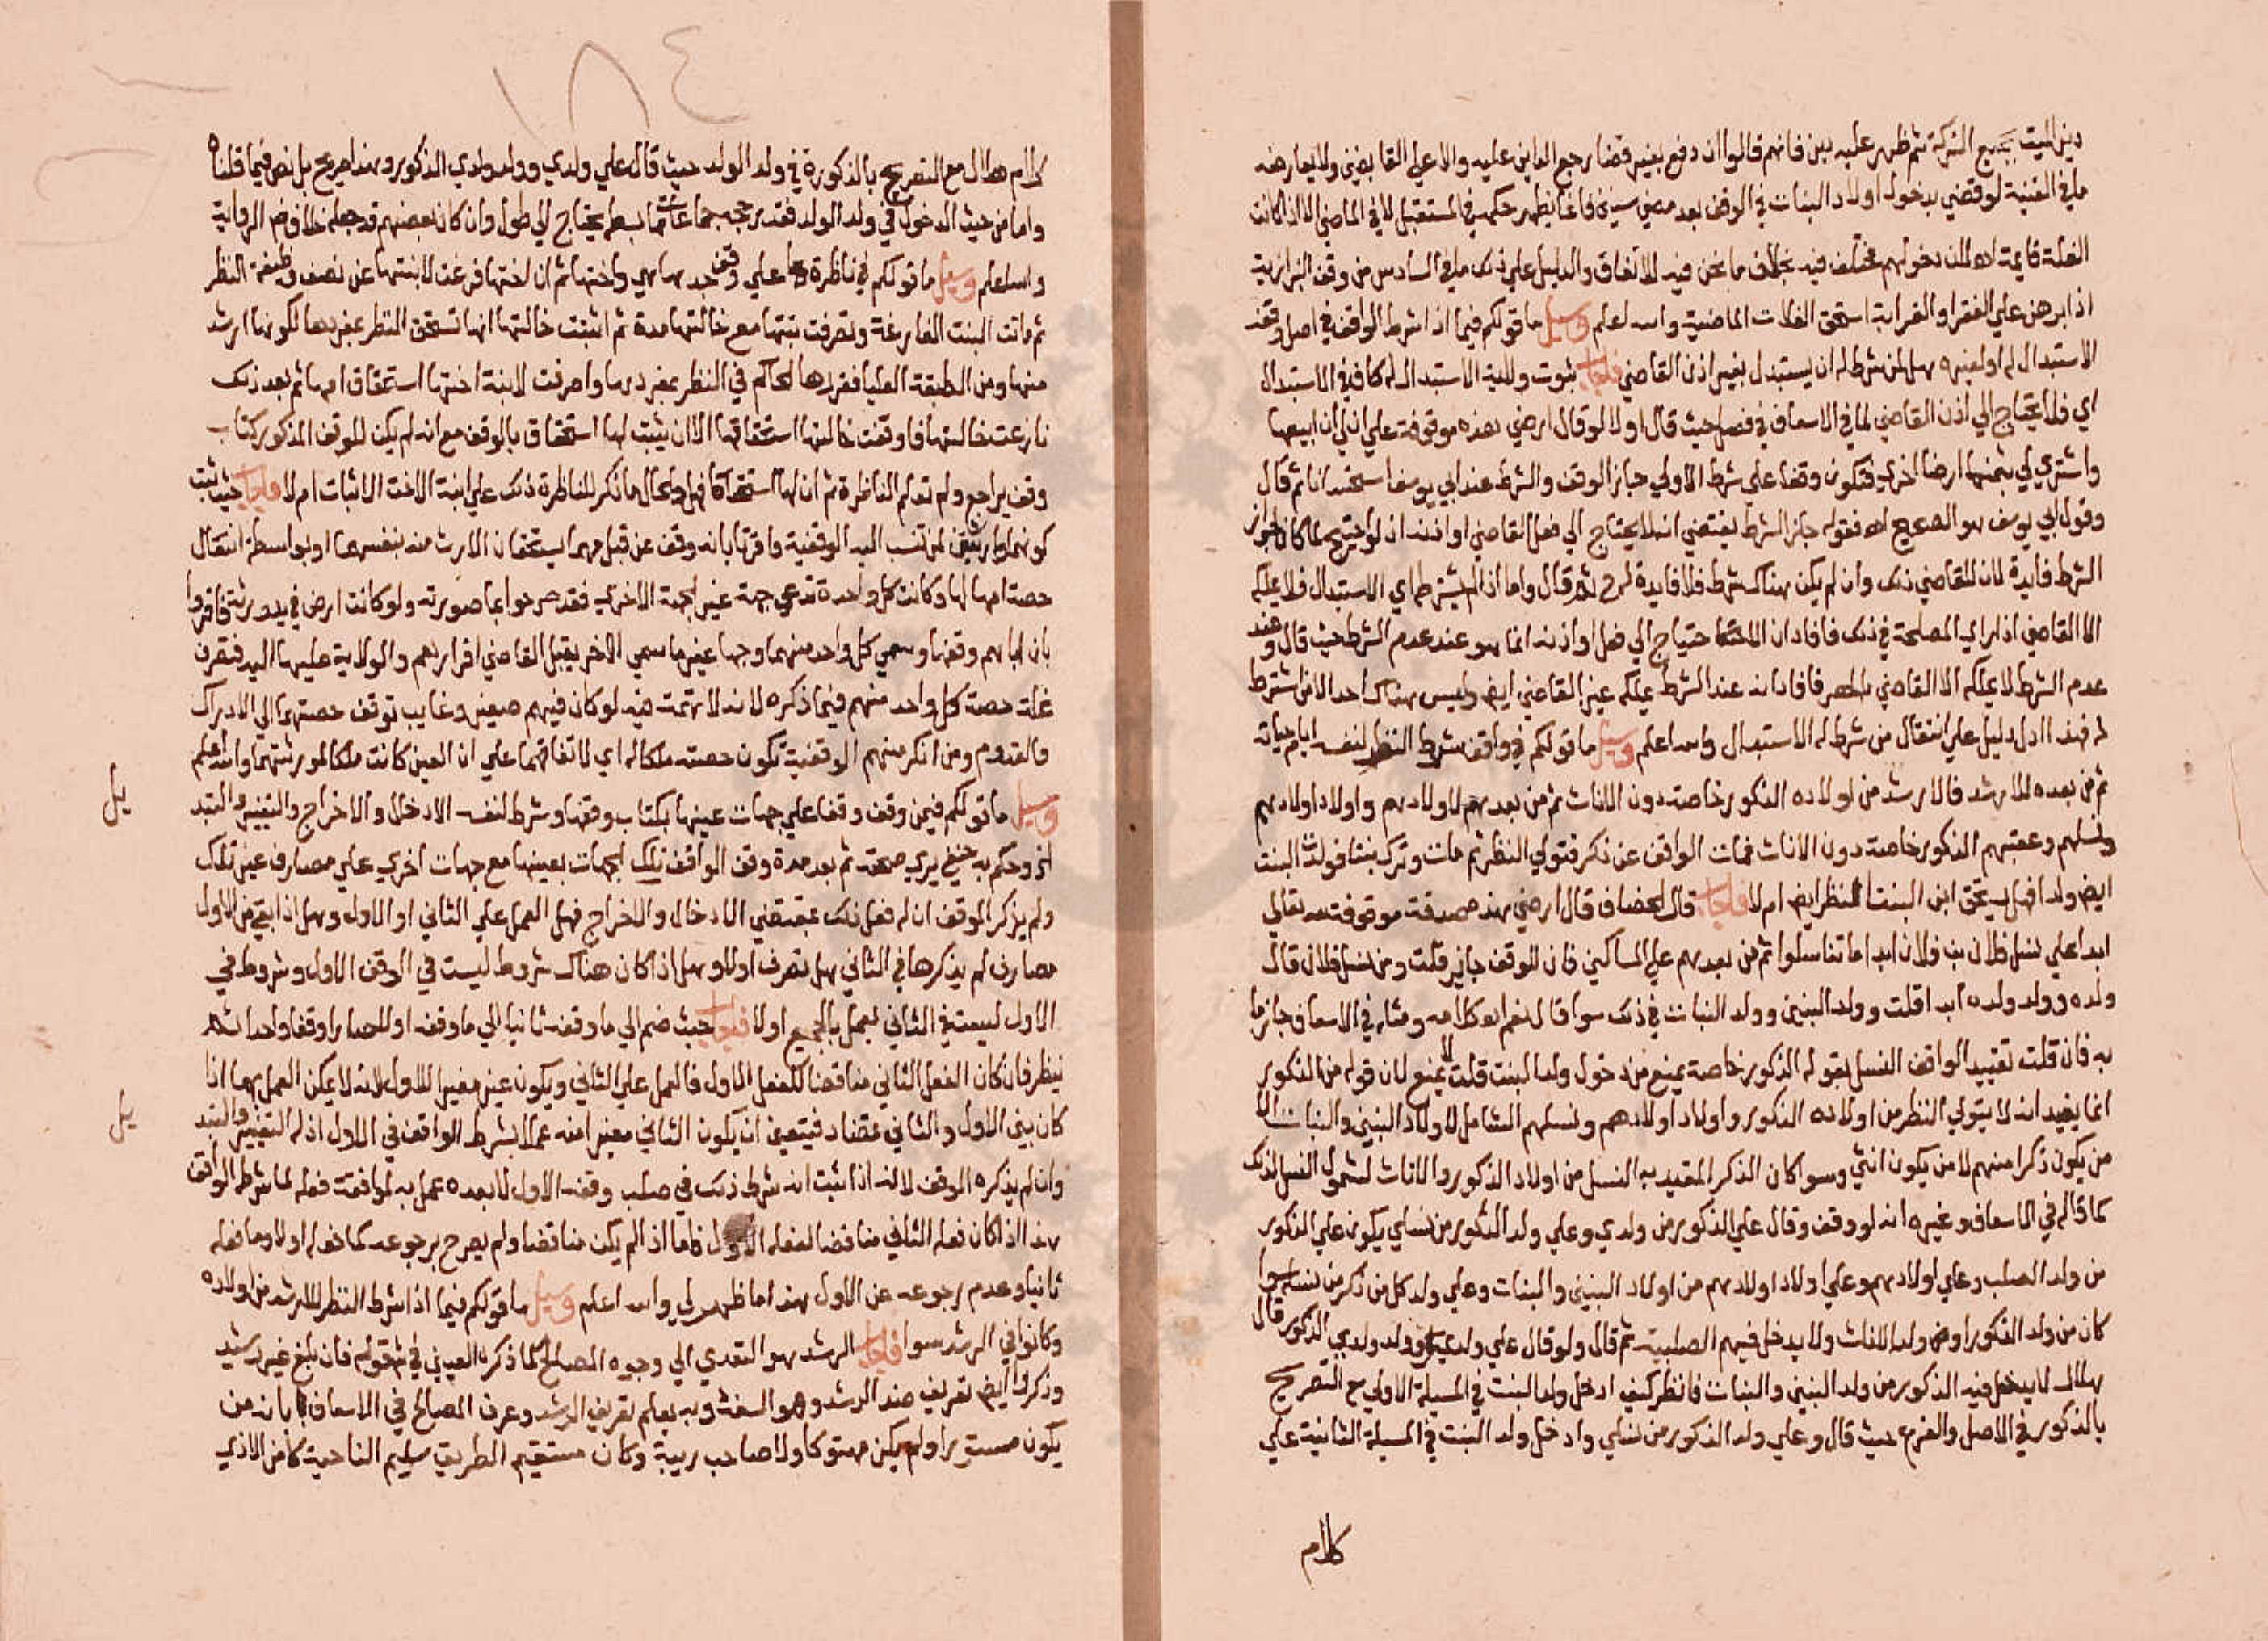 دين الميت بجميع التركة ثم ظهر عليه دين فانهم قالوا ان دفع بغير قضا رجع الداين عليه والا على القابضين ولا يعارضه
ما في القنية لو قضي بدخول اولاد البنات في الوقف بعد مضي سنين فانما يظهر حكمه في المستقبل لا في الماضي الا اذا كانت
الغلة قايمة اه لان دخولهم مختلف فيه بخلاف ما نحن فيه للاتفاق والدليل علي ذلك ما في السادس من وقف البزازية
اذا برهن علي الفقر او القرابة استحق الغلات الماضية والله اعلم وسيل ما قولكم فيما اذا شرط الواقف في اصل وقفه
الاستبدال له او لغيره هل لمن شرط له ان يستبدل بغير اذن القاضي فاجاب ثبوت ولاية الاستبدال له كاف في الاستبدال
اي فلا يحتاج الي اذن القاضي لما في الاسعاف في فصل حيث قال اولا لو قال ارضي هذه موقوفة علي ان لي ان ابيعها
واشتري لي بثمنها ارضا اخري فتكون وقفا علي شرط الاولي جاز الوقف والشرط عند ابي يوسف استحسانا ثم قال
وقول ابي يوسف هو الصحيح اه فقوله جاز الشرط يقتضي انه لا يحتاج الي فعل القاضي او اذنه اذ لو احتيج لما كان لجواز
الشرط فايدة لان للقاضي ذلك وان لم يكن هناك شرط فلا فايدة لشرطه ثم قال واما اذا لم يشترط اي الاستبدال فلا يملكه
الا القاضي اذا راي المصلحة في ذلك فافاد ان الاحتياج الي فعل او اذنه انما هو عند عدم الشرط حيث قال وعند
عدم الشرط لا يملكه الا القاضي بالحصر فافاد انه عند الشرط يملكه غير القاضي ايض وليس هناك احد الا من اشترط
له فهذا ادل دليل علي انتقال من شرط له الاستبدال والله اعلم وسيل ما قولكم في واقف شرط النظر لنفسه ايام حياته
ثم من بعده للارشد فالارشد من اولاده الذكور خاصة دون الاناث ثم من بعدهم لاولادهم واولاد اولادهم
ونسلهم وعقبهم الذكور خاصة دون الاناث فمات الواقف عن ذكر فتولي النظر ثم مات وترك بنتا فولدت البنت
ايض ولدا فهل يستحق ابن البنت النظر ايض ام لا فاجاب قال الخصاف قال ارضي هذه صدقة موقوفة لله تعالي
ابدا علي نسل فلان بن فلان ابدا ما تناسلوا ثم من بعدهم علي المساكين فان الوقف جايز قلت ومن نسل فلان قال
ولده وولد ولده ابدا قلت وولد البنين وولد البنات في ذلك سوا قال نعم اه كلامه ومثله في الاسعاف جازما
به فان قلت تقييد الواقف النسل بقوله الذكور خاصة يمنع من دخول ولد البنت قلت لا يمنع لان قوله من الذكور
انما يفيد انه لا يتولي النظر من اولاده الذكور واولاد اولادهم ونسلهم الشامل لاولاد البنين والبنات الا
من يكون ذكرا منهم لا من يكون انثي وسوا كان الذكر المقيد به النسل من اولاد الذكور والاناث لشمول النسل لذلك
كما قاله في الاسعاف وغيره انه لو وقف وقال علي الذكور من ولدي وعلي ولد الذكور من نسلي يكون علي الذكور
من ولد الصلب وعلي اولادهم وعلي اولاد اولادهم من اولاد البنين والبنات وعلي ولد كل من ذكر من نسله سوا
كان من ولد الذكور او من ولد الاناث ولا يدخل فيهم الصلبية ثم قال ولو قال علي ولدي وولد ولدي الذكور قال
هلال لا يدخل فيه الذكور من ولد البنين والبنات فانظر كيف ادخل ولد البنت في المسيلة الاولي مع التصريح
بالذكور في الاصل والفرع حيث قال وعلي ولد الذكور من نسلي وادخل ولد البنت في المسيلة الثانية علي
كلام
١٨٤
كلام هلال مع التصريح بالذكورة في ولد الولد حيث قال علي ولدي وولد ولدي الذكور وهذا صريح بل نص فيما قلناه
واما من حيث الدخول في ولد الولد فقد رجحه جماعات مما بسطه يحتاج الي طول وان كان بعضهم قد جعله خلاف ض الرواية
والله اعلم وسيل ما قولكم في ناظرة علي وقف جدها هي واختها ثم ان اختها فرغت لابنتها عن نصف وظيفة النظر
ثم ماتت البنت الفارغة وتصرفت بنتها مع خالتها مدة ثم اثبتت خالتها انها تستحق النظر بمفردها لكونها ارشد
منها ومن الطبقة العليا فقررها الحاكم في النظر بمفردها واصرفت لابنة اختها استحقاق امها ثم بعد ذلك
نازعت خالتها فاوقفت خالتها استحقاقها الا ان يثبت لها استحقاق بالوقف مع انه لم يكن للوقف المذكور كتاب
وقف يراجع ولم تعلم الناظرة ثم ان لها استحقاقا فهل والحال ما ذكر للناظرة ذلك علي ابنة الاخت الاثبات ام لا فاجاب حيث ثبت
كونهما وارثتين لمن تنسب اليه الوقفية واقرتا بانه وقف عن قبل مهما يستحقان الارث منه بنفسهما او بواسطة انتقال
حصة امها لها وكانت كل واحدة تدعي جهة غير الجهة الاخري فقد صرحوا بما صورته ولو كانت ارض في يد ورثة فاقروا
بان اباهم وقفها وسمي كل واحد منهما وجها غير ما سمي الاخر يقبل القاضي اقرارهم والولاية عليها اليه فيصرف
غلة حصة كل واحد منهم فيما ذكره لانه لا تهمة فيه لو كان فيهم صغير وغايب توقف حصتهما الي الادراك
والقدوم ومن انكر منهم الوقفية تكون حصته ملكا له اي لاتفاقهما علي ان العين كانت ملكا لمورثهما والله اعلم
وسيل ما قولكم فيمن وقف وقفا علي جهات عينها بكتاب وقفها وشرط لنفسه الادخال والاخراج والتغيير والتبد
يل
الخ وحكم به حنفي يري صحته ثم بعد مدة وقف الواقف تلك الجهات بعينها مع جهات اخري علي مصارف غير تلك
ولم يذكر الوقف ان له فعل ذلك بمقتضي الادخال والاخراج فهل العمل علي الثاني او الاول وهل اذا بقي من الاول
مصارف لم يذكرها في الثاني هل تصرف اولا وهل اذا كان هناك شروط ليست في الوقف الاول وشروط في
الاول ليست في الثاني يعمل بالجميع اولا فاجاب حيث ضم الي ما وقفه ثانيا الي ما وقفه اولا صارا وقفا واحدا ثم
ينظر فان كان الفعل الثاني مناقضا للفعل الاول فالعمل علي الثاني ويكون غير مغيرا للاول لانه لا يمكن العمل بهما اذا
كان بين الاول والثاني تضاد فيتعين ان يكون الثاني مغيرا منه عملا بشرط الواقف في الاول اذ له التغيير والتبد
يل
وان لم يذكره الوقف لانه اذا ثبت انه شرط ذلك في صلب وقفه الاول لا بعده عمل به لموافقة فعله لما شرطه الواقف
هذا اذا كان فعله الثاني مناقضا لفعله الاول فاما اذا لم يكن مناقضا ولم يصرح برجوعه كما فعله اولا وما فعله
ثانيا وعدم رجوعه عن الاول هذا ما ظهر لي والله اعلم وسيل ما قولكم فيما اذا شرط النظر للارشد من اولاده
وكانوا في الرشد سوا فاجاب الرشد هو التهدي الي وجوه المصالح كما ذكره العيني في قوله فان بلغ غير رشيد
وذكروا ايض تعريف ضد الرشد وهو السفه وبه يعلم تعريف الرشد وعرف المصالح في الاسعاف بانه من
يكون مستورا ولم يكن مهتوكا ولا صاحب ريبة وكان مستقيم الطريق سليم الناحية كامن الاذي